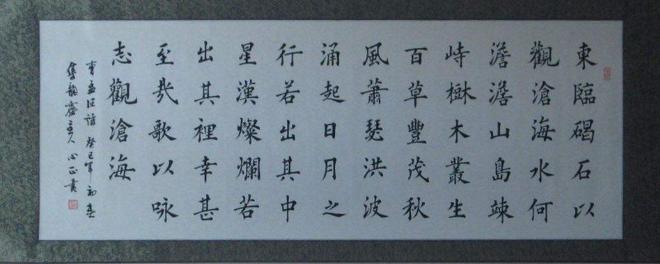 東臨碣石以
觀滄海水何
澹澹山島竦
峙樹木叢生
百草豐茂秋
風蕭瑟洪波
涌起日月之
行若出其中
星漢燦爛若
出其裡幸甚
至哉歌以咏
志觀滄海
曹孟德詩 癸巳年初春
齋主人心正書